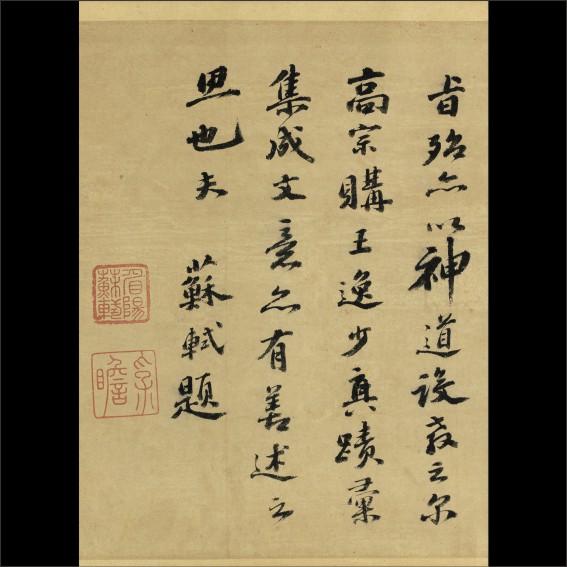 旨殆亦以神道設教云尔
高宗購王逸少真蹟彙
集成文意亦有善述之
思也夫 蘇軾題
眉陽蘇軾
子瞻